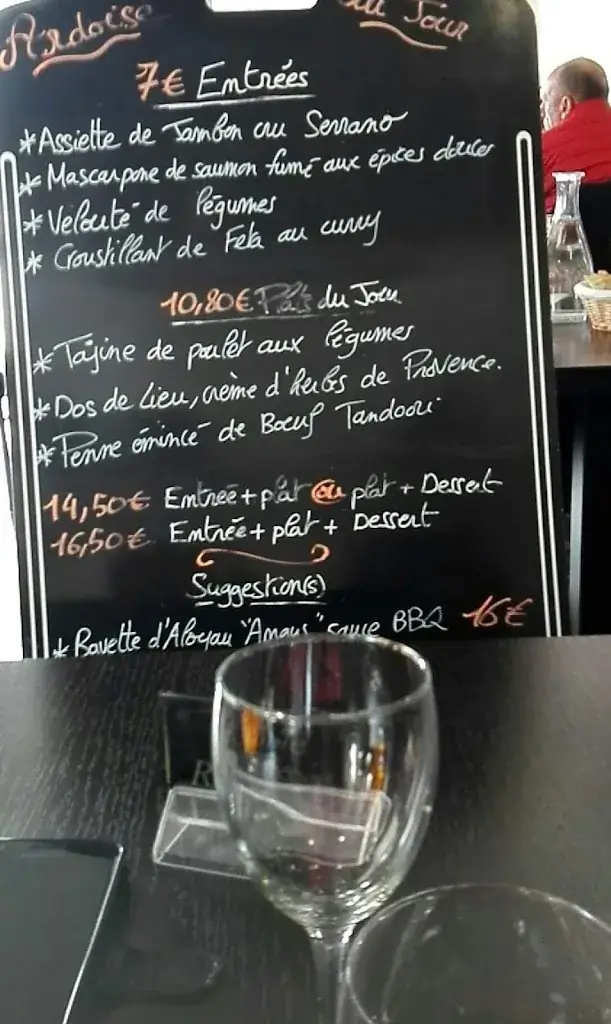 Ardoise du Jour
7€ Entrées
* Assiette de Jambon cru Serrano
* Mascarpone de saumon fumé aux épices douces
* Velouté de légumes
* Croustillant de Feta au curry
10,80€ Plats du Jour
* Tajine de poulet aux légumes
* Dos de Lieu, crème d'herbes de Provence.
* Penne émincé de Boeuf Tandoori
14,50€ Entrée + plat ou plat + Dessert
16,50€ Entrée + plat + Dessert
Suggestion(s)
* Bavette d'Aloyau "Angus" sauce BBQ 16€